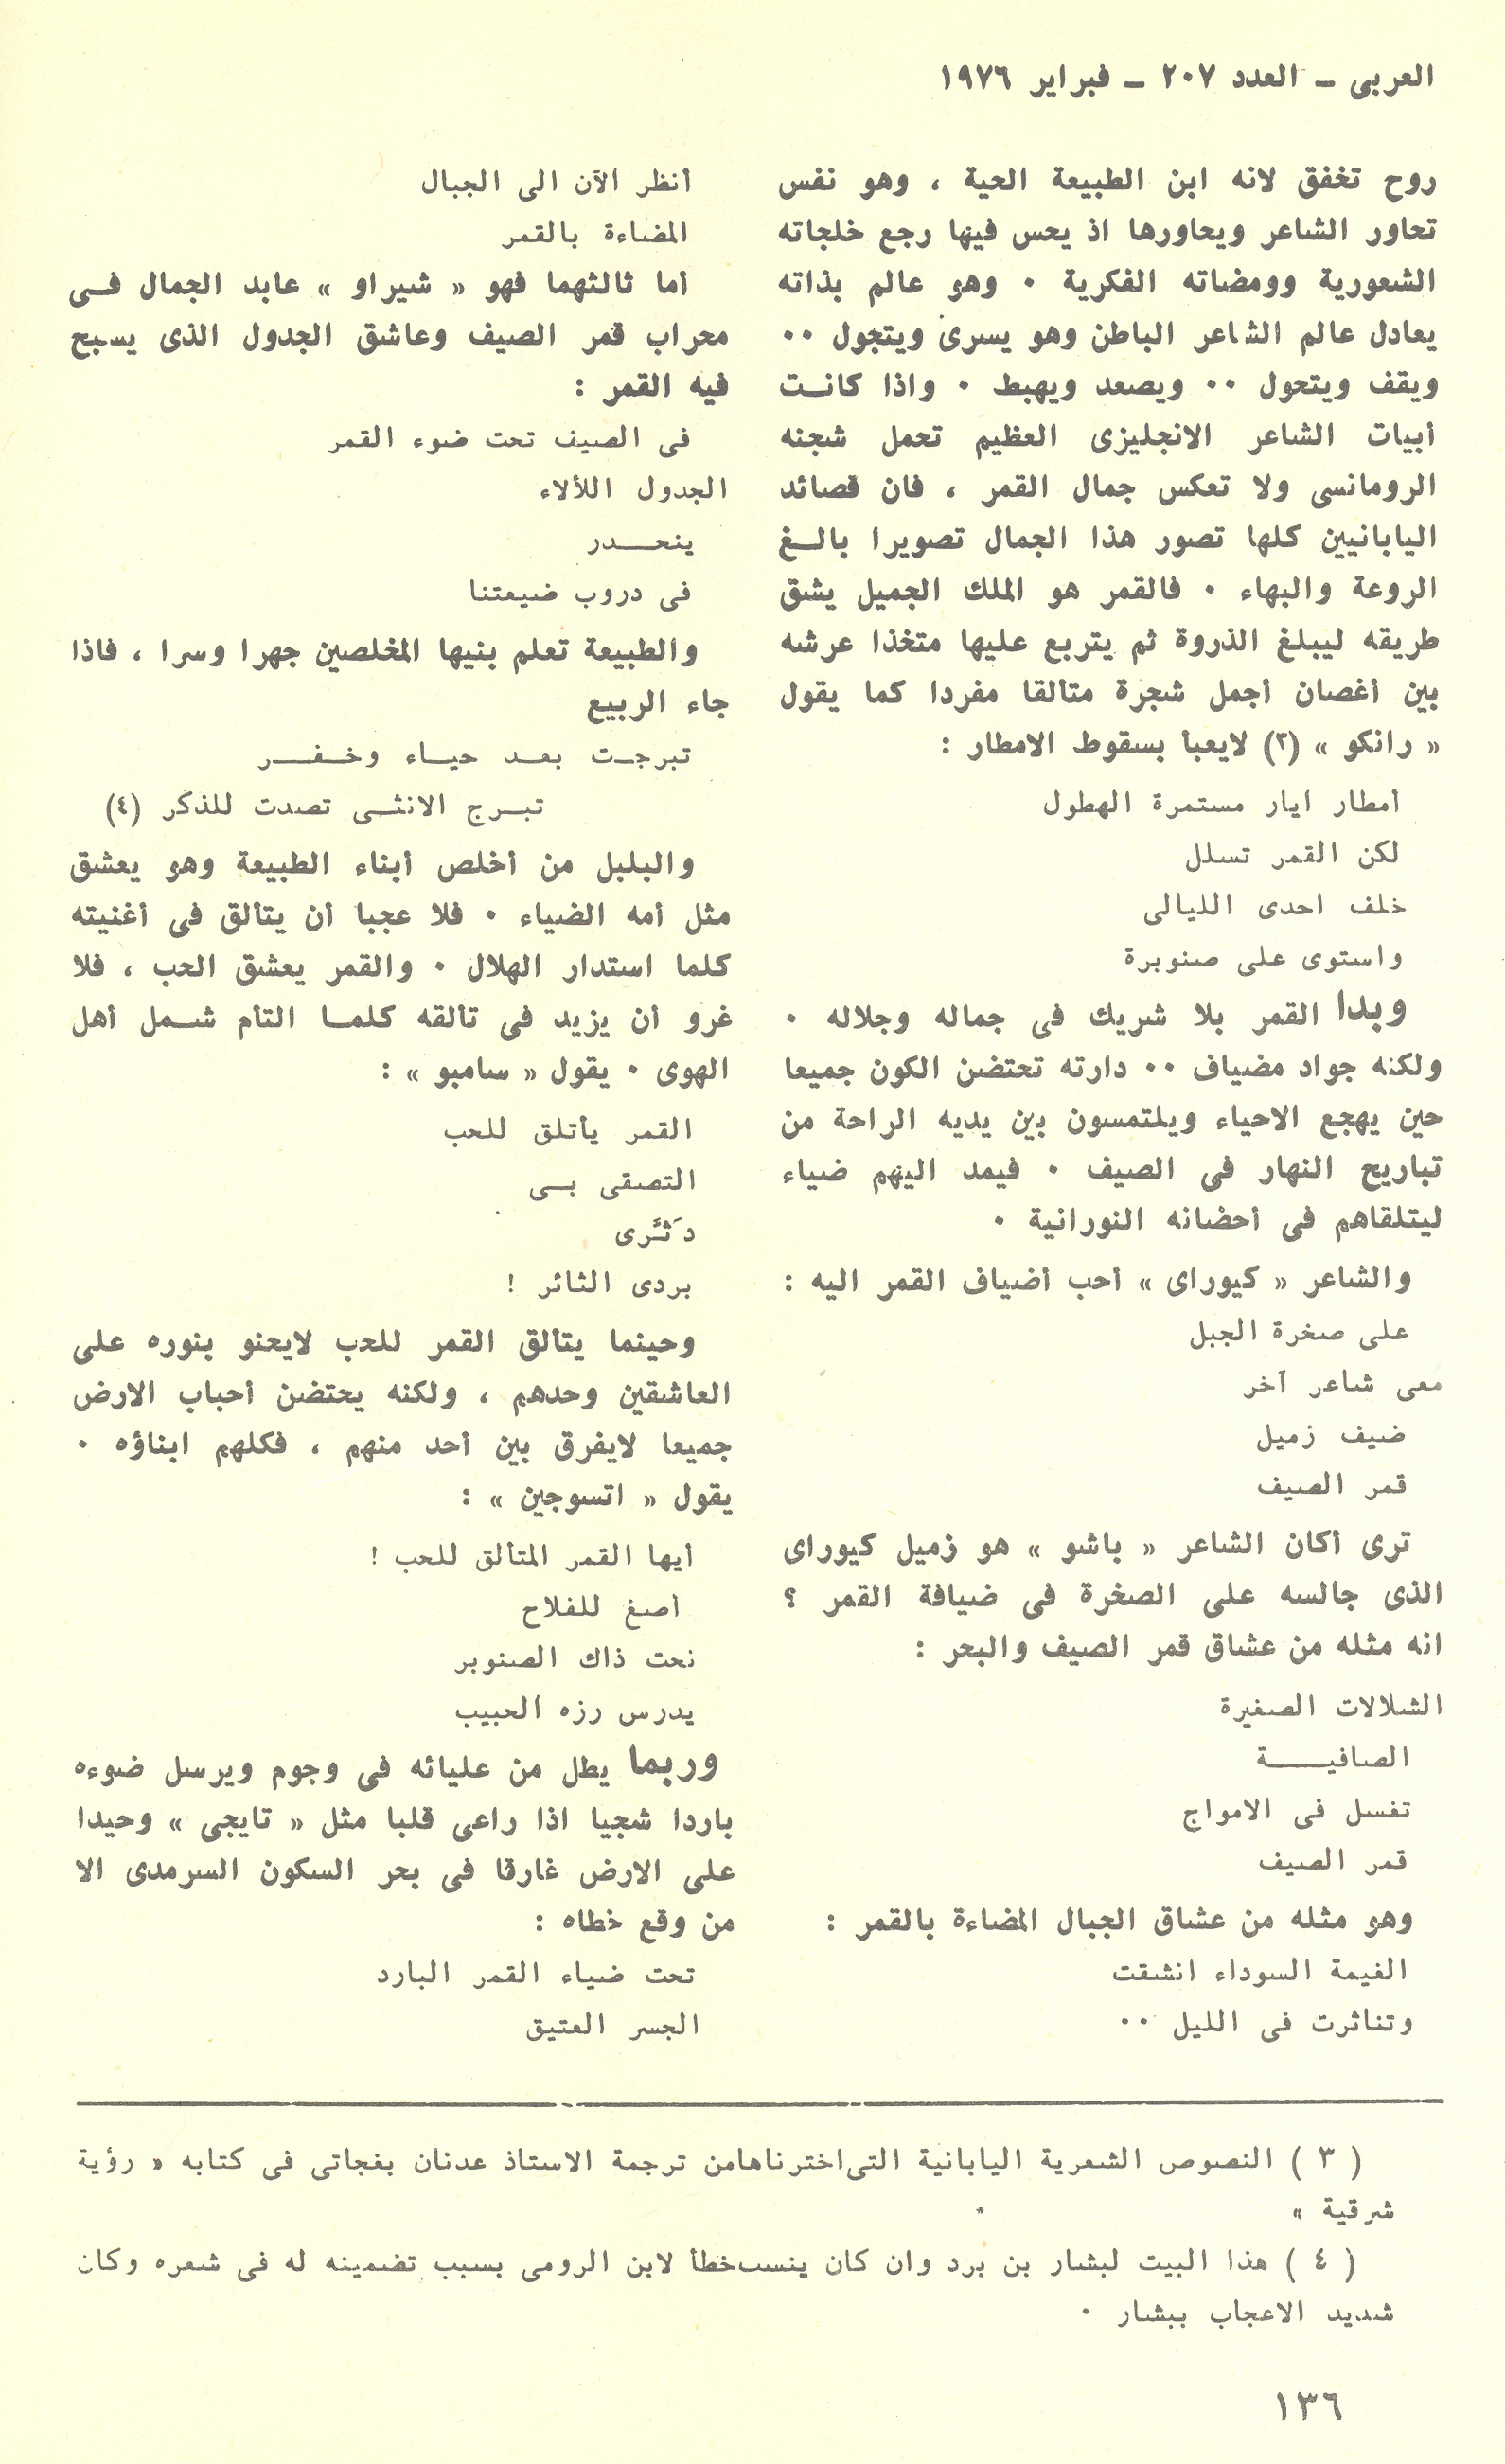 العربى ـ العدد ٢٠٧ ـ فبراير ١٩٧٦
روح تخفق لانه ابن الطبيعة الحية ، وهو نفس
تحاور الشاعر ويحاورها اذ يحس فيها رجع خلجاته
الشعورية وومضاته الفكرية ٠ وهو عالم بذاته
يعادل عالم الشاعر الباطن وهو يسرى ويتجول ٠٠
ويقف ويتحول ٠٠ ويصعد ويهبط ٠ واذا كانـت
أبيات الشاعر الانجليزى العظيم تحمل شجنه
الرومانسى ولا تعكس جمال القمر ، فان قصائد
اليابانيين كلها تصور هذا الجمال تصويرا بالـغ
الروعة والبهاء ٠ فالقمر هو الملك الجميل يشق
طريقه ليبلغ الذروة ثم يتربع عليها متخذا عرشه
بين أغصان أجمل شجرة متألقا مفردا كما يقول
« رانكو » (٣) لايعبأ بسقوط الامطار :
أمطار ايار مستمرة الهطول
لكن القمر تسلل
خلف احدى الليالى
واستوى على صنوبرة
وبدا القمر بلا شريك فى جماله وجلاله ٠
ولكنه جواد مضياف ٠٠ دارته تحتضن الكون جميعا
حين يهجع الاحياء ويلتمسون بين يديه الراحة من
تباريح النهار فى الصيف ٠ فيمد اليهم ضياء
ليتلقاهم فى أحضانه النورانية ٠
والشاعر « كيوراى » أحب أضياف القمر اليه :
على صخرة الجبل
معى شاعر آخر
ضيف زميل
قمر الصيف
ترى أكان الشاعر « باشو » هو زميل كيوراى
الذى جالسه على الصخرة فى ضيافة القمر ؟
انه مثله من عشاق قمر الصيف والبحر :
الشلالات الصغيرة
الصافيـــــة
تغسل فى الامواج
قمر الصيف
وهو مثله من عشاق الجبال المضاءة بالقمر :
الغيمة السوداء انشقت
وتناثرت فى الليل ٠٠
أنظر الآن الى الجبال
المضاءة بالقمر
أما ثالثهما فهو « شيراو » عابد الجمال فـى
محراب قمر الصيف وعاشق الجدول الذى يسبح
فيه القمر :
فى الصيف تحت ضوء القمر
الجدول اللألاء
ينحـــدر
فى دروب ضيعتنا
والطبيعة تعلم بنيها المخلصين جهرا وسرا ، فاذا
جاء الربيع
تبرجـت بعـد حيـاء وخـفـــر
تبـرج الانثـى تصدت للذكر (٤)
والبلبل من أخلص أبناء الطبيعة وهو يعشق
مثل أمه الضياء ٠ فلا عجبا أن يتألق فى أغنيته
كلما استدار الهلال ٠ والقمر يعشق الحب ، فلا
غرو أن يزيد فى تألقه كلمـا التأم شـمل أهل
الهوى ٠ يقول « سامبو » :
القمر يأتلق للحب
التصقى بـى
دَثـَّرى
بردى الثائر !
وحينما يتألق القمر للحب لايحنو بنوره على
العاشقين وحدهم ، ولكنه يحتضن أحباب الارض
جميعا لايفرق بين أحد منهم ، فكلهم ابناؤه ٠
يقول « اتسوجين » :
أيها القمر المتألق للحب !
أصغ للفلاح
تحت ذاك الصنوبر
يدرس رزه الحبيب
وربما يطل من عليائه فى وجوم ويرسل ضوءه
باردا شجيا اذا راعى قلبا مثل « تايجى » وحيدا
على الارض غارقا فى بحر السكون السرمدى الا
من وقع خطاه :
تحت ضياء القمر البارد
الجسر العتيق
( ٣ ) النصوص الشعرية اليابانية التى اخترناها من ترجمة الاستاذ عدنان بغجاتى فى كتابه « رؤية
شرقية » ٠
( ٤ ) هذا البيت لبشار بن برد وان كان ينسب خطأ لابن الرومى بسبب تضمينه له فى شعره وكان
شديد الاعجاب ببشار ٠
١٣٦